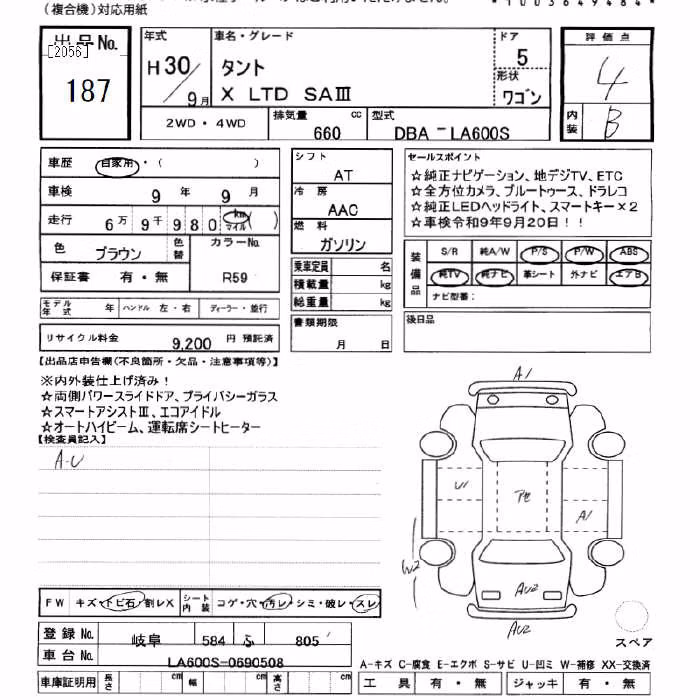 (複合機)対応用紙
*1003649484*
出品No.
[2056]
187
年式
H30/9月
車名・グレード
タント
X LTD SAⅢ
ドア
5
形状
ワゴン
評価点
4
内装
B
2WD・4WD
排気量 660 cc
型式 DBA-LA600S
車歴 自家用・( )
車検 9年 9月
走行 6万9千980 km マイル ( )
色 ブラウン 色替
カラーNo. R59
保証書 有・無
モデル年式 年 ハンドル 左・右 ディーラー・並行
リサイクル料金 9,200 円 預託済
シフト
AT
冷房
AAC
燃料
ガソリン
乗車定員 名
積載量 kg
総重量 kg
書類期限
月 日
セールスポイント
☆純正ナビゲーション、地デジTV、ETC
☆全方位カメラ、ブルートゥース、ドラレコ
☆純正LEDヘッドライト、スマートキー×2
☆車検令和9年9月20日!!
装備品
S/R 純A/W P/S P/W ABS
純TV 純ナビ 革シート 外ナビ エアB
ナビ型番:
後日品
【出品店申告欄(不良箇所・欠品・注意事項等)】
※内外装仕上げ済み!
☆両側パワースライドドア、プライバシーガラス
☆スマートアシストⅢ、エコアイドル
☆オートハイビーム、運転席シートヒーター
【検査員記入】
A-U
A1
U1
A1
W2
AU2
AU2
スペア
FW キズ・トビ石・割レX
シート内装 コゲ・穴・汚レ・シミ・破レ・スレ
登録No. 岐阜 584 ふ 805
車台No. LA600S-0690508
車庫証明用 長さ cm 幅 cm 高さ cm
A-キズ C-腐食 E-エクボ S-サビ U-凹ミ W-補修 XX-交換済
工具 有・無 ジャッキ 有・無